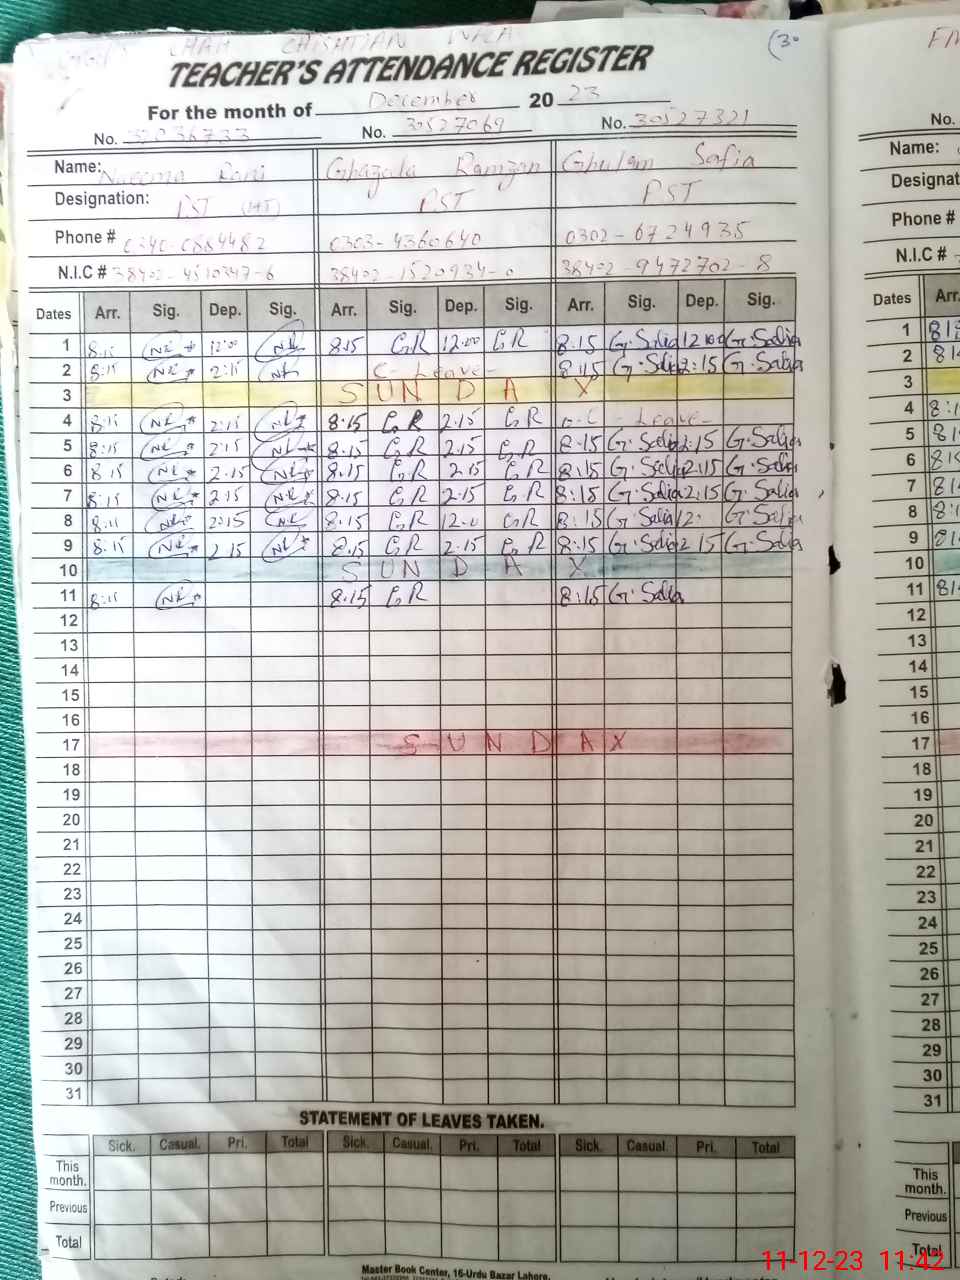 CHAH CHISHTIAN WALA
(30
TEACHER'S ATTENDANCE REGISTER
For the month of December 2023
No. No. 30527069 No. 30527321
Name: Naeema Rani Ghazala Ramzan Ghulam Safia
Designation: PST (HT) PST PST
Phone # 0303-4360640 0302-6724935
N.I.C # 38402-4510347-6 38402-1520934-0 38402-9472702-8
Dates Arr. Sig. Dep. Sig. Arr. Sig. Dep. Sig. Arr. Sig. Dep. Sig.
1 8:15 12:00 8:15 G.R 12:00 G.R 8:15 G.Safia 12:00 G.Safia
2 8:15 2:15 C-Leave- 8:15 G.Safia 2:15 G.Safia
3 SUNDAY
4 8:15 2:15 8.15 G.R 2.15 G.R Leave-
5 8:15 2:15 8.15 G.R 2.15 G.R 8.15 G.Safia 2:15 G.Safia
6 8:15 2.15 8.15 G.R 2.15 G.R 8:15 G.Safia 2:15 G.Safia
7 8:15 2:15 8.15 G.R 2.15 G.R 8:15 G.Safia 2:15 G.Safia
8 2:15 8.15 G.R G.R 8:15 G.Safia G.Safia
9 8:15 2.15 8.15 G.R 2.15 G.R 8:15 G.Safia 2.15 G.Safia
10 SUNDAY
11 8:15 8.15 G.R 8:15 G.Safia
12
13
14
15
16
17 SUNDAY
18
19
20
21
22
23
24
25
26
27
28
29
30
31
STATEMENT OF LEAVES TAKEN.
Sick. Casual. Pri. Total Sick. Casual. Pri. Total Sick. Casual. Pri. Total
This month.
Previous
Total
Master Book Center, 16-Urdu Bazar Lahore.
No.
Name:
Designat
Phone #
N.I.C #
Dates Arr.
1
2
3
4
5
6
7
8
9
10
11
12
13
14
15
16
17
18
19
20
21
22
23
24
25
26
27
28
29
30
31
This month.
Previous
Total
11-12-23 11:42